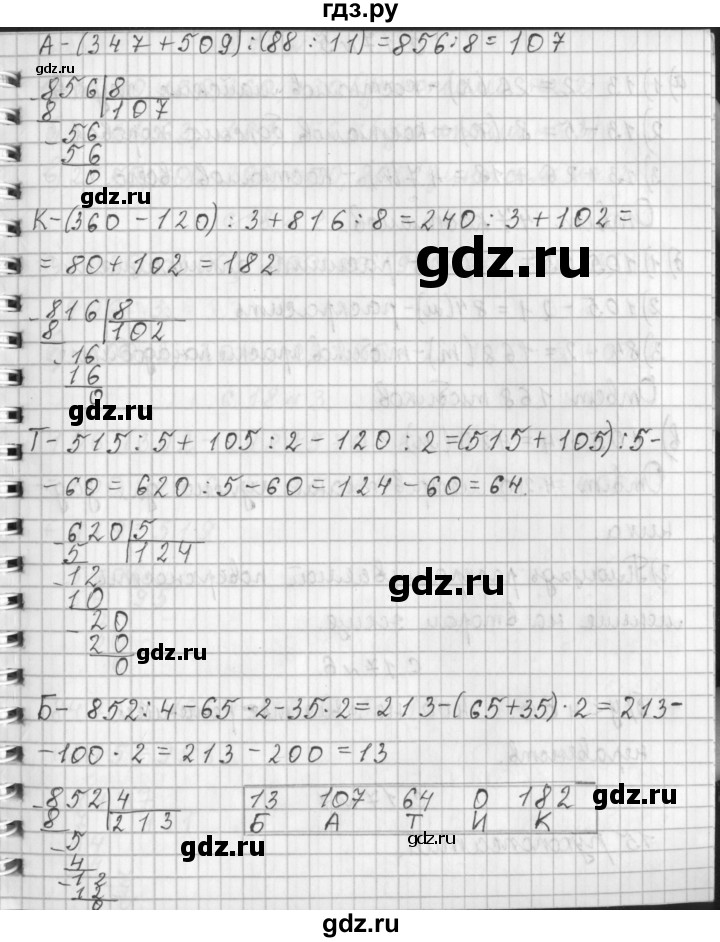 гдз.ру
А-(347+509):(88:11)=856:8=107
gdz.ru
-856|8
8 107
-56
56
0
gdz.ru
К-(360-120):3+816:8=240:3+102=
=80+102=182
gdz.ru
-816|8
8 102
-16
16
0
gdz.ru
Т-515:5+105:2-120:2=(515+105):5-
-60=620:5-60=124-60=64.
-620|5
5 124
-12
10
-20
20
0
gdz.ru
gdz.ru
Б- 852:4-65·2-35·2=213-(65+35)·2=213-
-100·2=213-200=13
-852|4
8 213
-5
4
-12
12
0
13 107 64 0 182
Б А Т И К
gdz.ru
gdz.ru
gdz.ru
гдз.ру